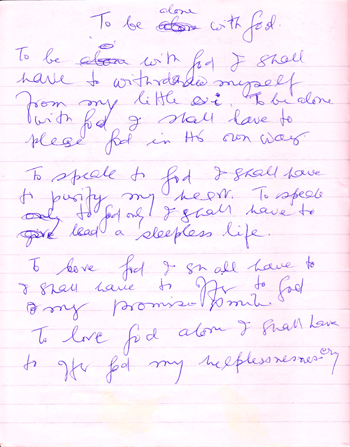 alone
To be alone with God.
To be alone with God I shall
have to withdraw myself
from my little "i". To be alone
with God I shall have to
please God in His own way
To speak to God I shall have
to purify my heart. To speak
only to God only I shall have to
lead a sleepless life.
To love God I shall have to
I shall have to offer to God
my promise
To love God alone I shall have
to offer God my helplessness cry